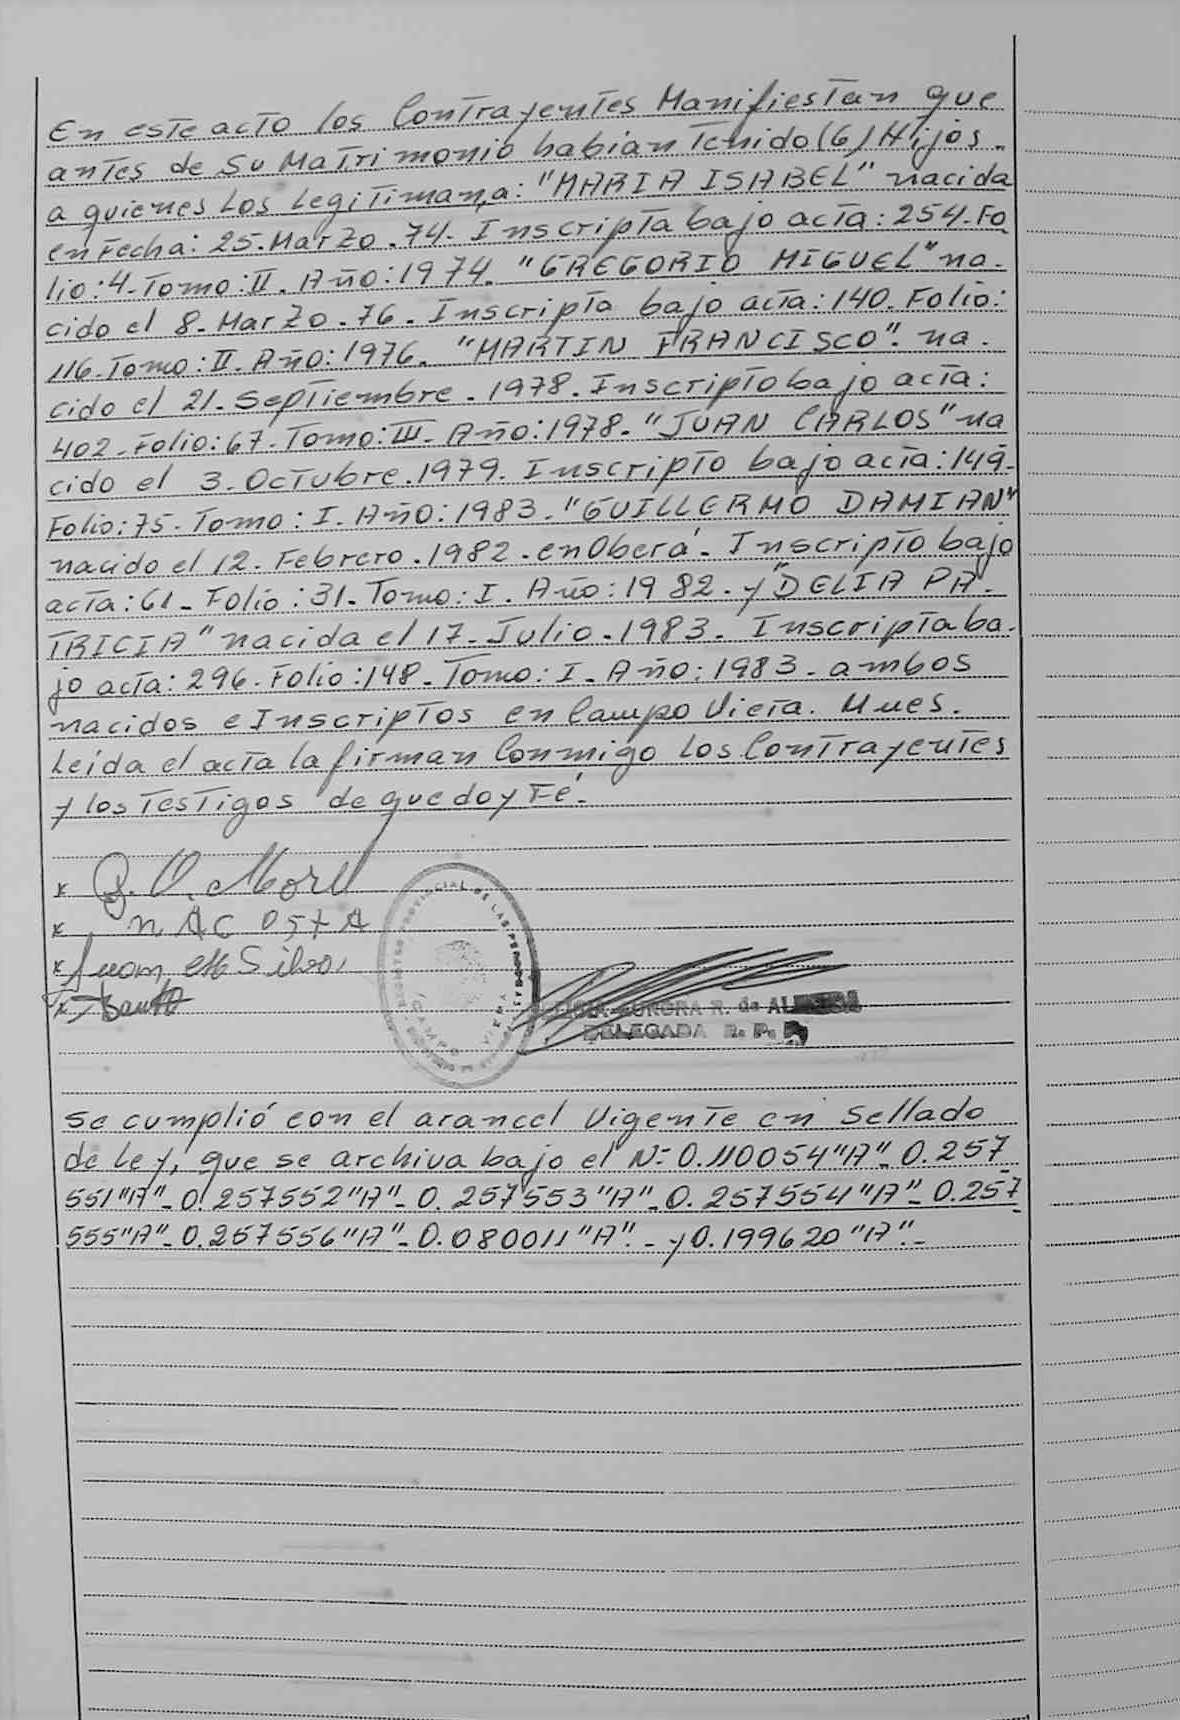 En este acto los Contrayentes Manifiestan que
antes de su Matrimonio habian Tenido (6) Hijos.
a quienes Los Legitiman, a: "MARIA ISABEL" nacida
en Fecha: 25. Marzo. 74. Inscripta bajo acta: 254. Fo
lio: 4. Tomo: II. Año: 1974. "GREGORIO MIGUEL" na-
cido el 8. Marzo. 76. Inscripta bajo acta: 140. Folio:
116. Tomo: II. Año: 1976. "MARTIN FRANCISCO". na-
cido el 21. Septiembre. 1978. Inscripto bajo acta:
402. Folio: 67. Tomo: III. Año: 1978. "JUAN CARLOS" na
cido el 3. Octubre. 1979. Inscripto bajo acta: 149.
Folio: 75. Tomo: I. Año: 1983. "GUILLERMO DAMIAN"
nacido el 12. Febrero. 1982. en Oberá. Inscripto bajo
acta: 61. Folio: 31. Tomo: I. Año: 1982. y "DELIA PA-
TRICIA" nacida el 17. Julio. 1983. Inscripta ba-
jo acta: 296. Folio: 148. Tomo: I. Año: 1983. ambos
nacidos e Inscriptos en Campo Viera. Mnes.
Leída el acta la firman Conmigo Los Contrayentes
y los Testigos de que doy Fé.
AURORA R. de
DELEGADA R. P.
Se cumplió con el arancel Vigente en Sellado
de Ley, que se archiva bajo el Nº 0.110054 "A" - 0.257
551 "A" - 0.257552 "A" - 0.257553 "A" - 0.257554 "A" - 0.257
555 "A" - 0.257556 "A" - 0.080011 "A". - y 0.199620 "A". -